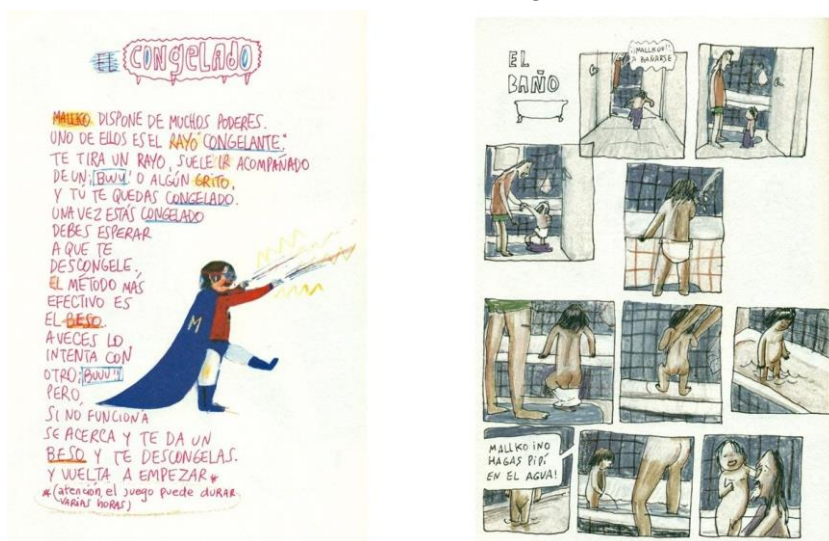 EL CONGELADO
MALLKO DISPONE DE MUCHOS PODERES.
UNO DE ELLOS ES EL RAYO "CONGELANTE."
TE TIRA UN RAYO, SUELE IR ACOMPAÑADO
DE UN ¡BUU! O ALGÚN GRITO,
Y TÚ TE QUEDAS CONGELADO.
UNA VEZ ESTÁS CONGELADO
DEBES ESPERAR
A QUE TE
DESCONGELE.
EL MÉTODO MÁS
EFECTIVO ES
EL BESO.
A VECES LO
INTENTA CON
OTRO ¡BUUU!!
PERO,
SI NO FUNCIONA
SE ACERCA Y TE DA UN
BESO Y TE DESCONGELAS.
Y VUELTA A EMPEZAR *
* (atención, el juego puede durar
VARIAS HORAS)
M
EL
BAÑO
¡¡MALLKOO!!
A BAÑARSE
MALLKO ¡NO
HAGAS PIPÍ
EN EL AGUA!